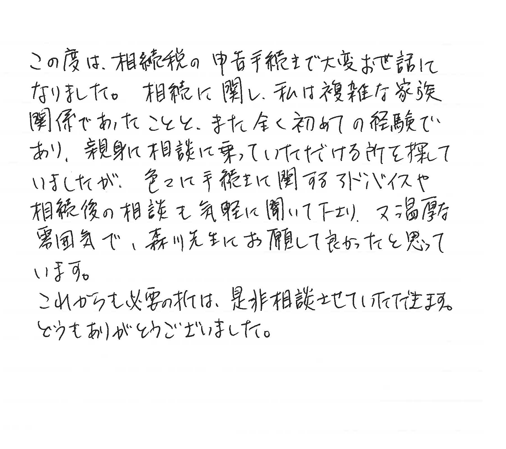 この度は、相続税の申告手続まで大変お世話に
なりました。 相続に関し、私は複雑な家族
関係であったことと、また全く初めての経験で
あり、親身に相談に乗っていただける所を探して
いましたが、色々に手続きに関するアドバイスや
相続後の相談も気軽に聞いて下さり、又温厚な
雰囲気で、森川先生にお願して良かったと思って
います。
これからも必要の折は、是非相談させていただきます。
どうもありがとうございました。